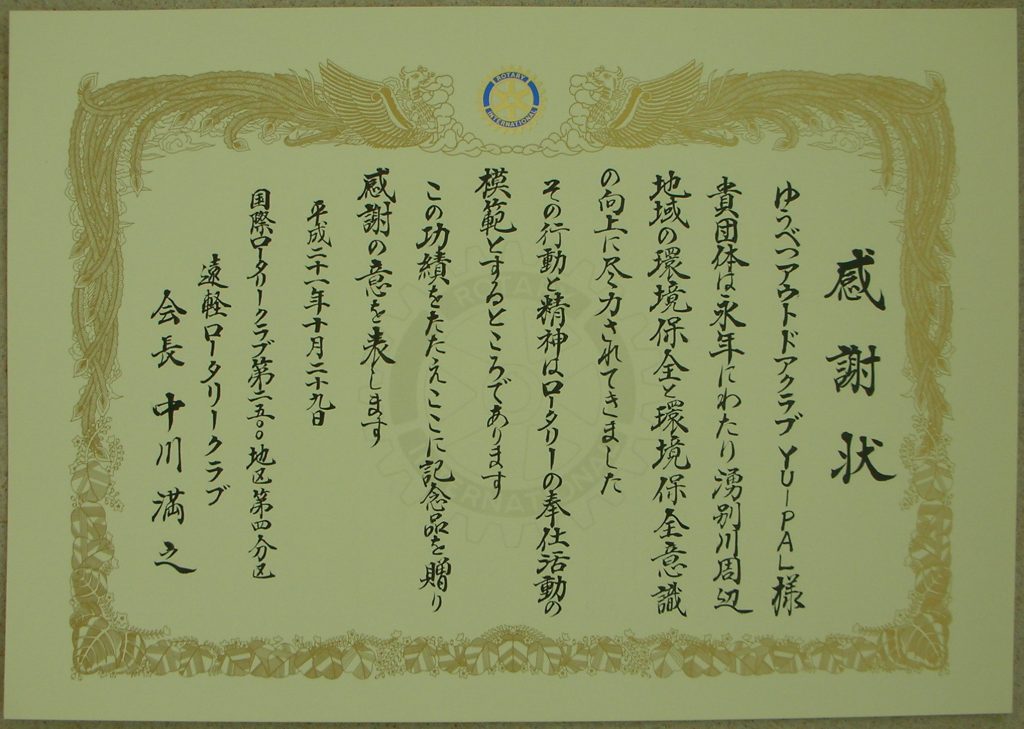 ROTARY
INTERNATIONAL
感謝状
ゆうべつアウトドアクラブ YU-PAL様
貴団体は永年にわたり湧別川周辺
地域の環境保全と環境保全意識
の向上に尽力されてきました
その行動と精神はロータリーの奉仕活動の
模範とするところであります
この功績をたたえここに記念品を贈り
感謝の意を表します
平成二十一年十月二十九日
国際ロータリークラブ第二五〇〇地区第四分区
遠軽ロータリークラブ
会長 中川満之
ROTARY
INTERNATIONAL